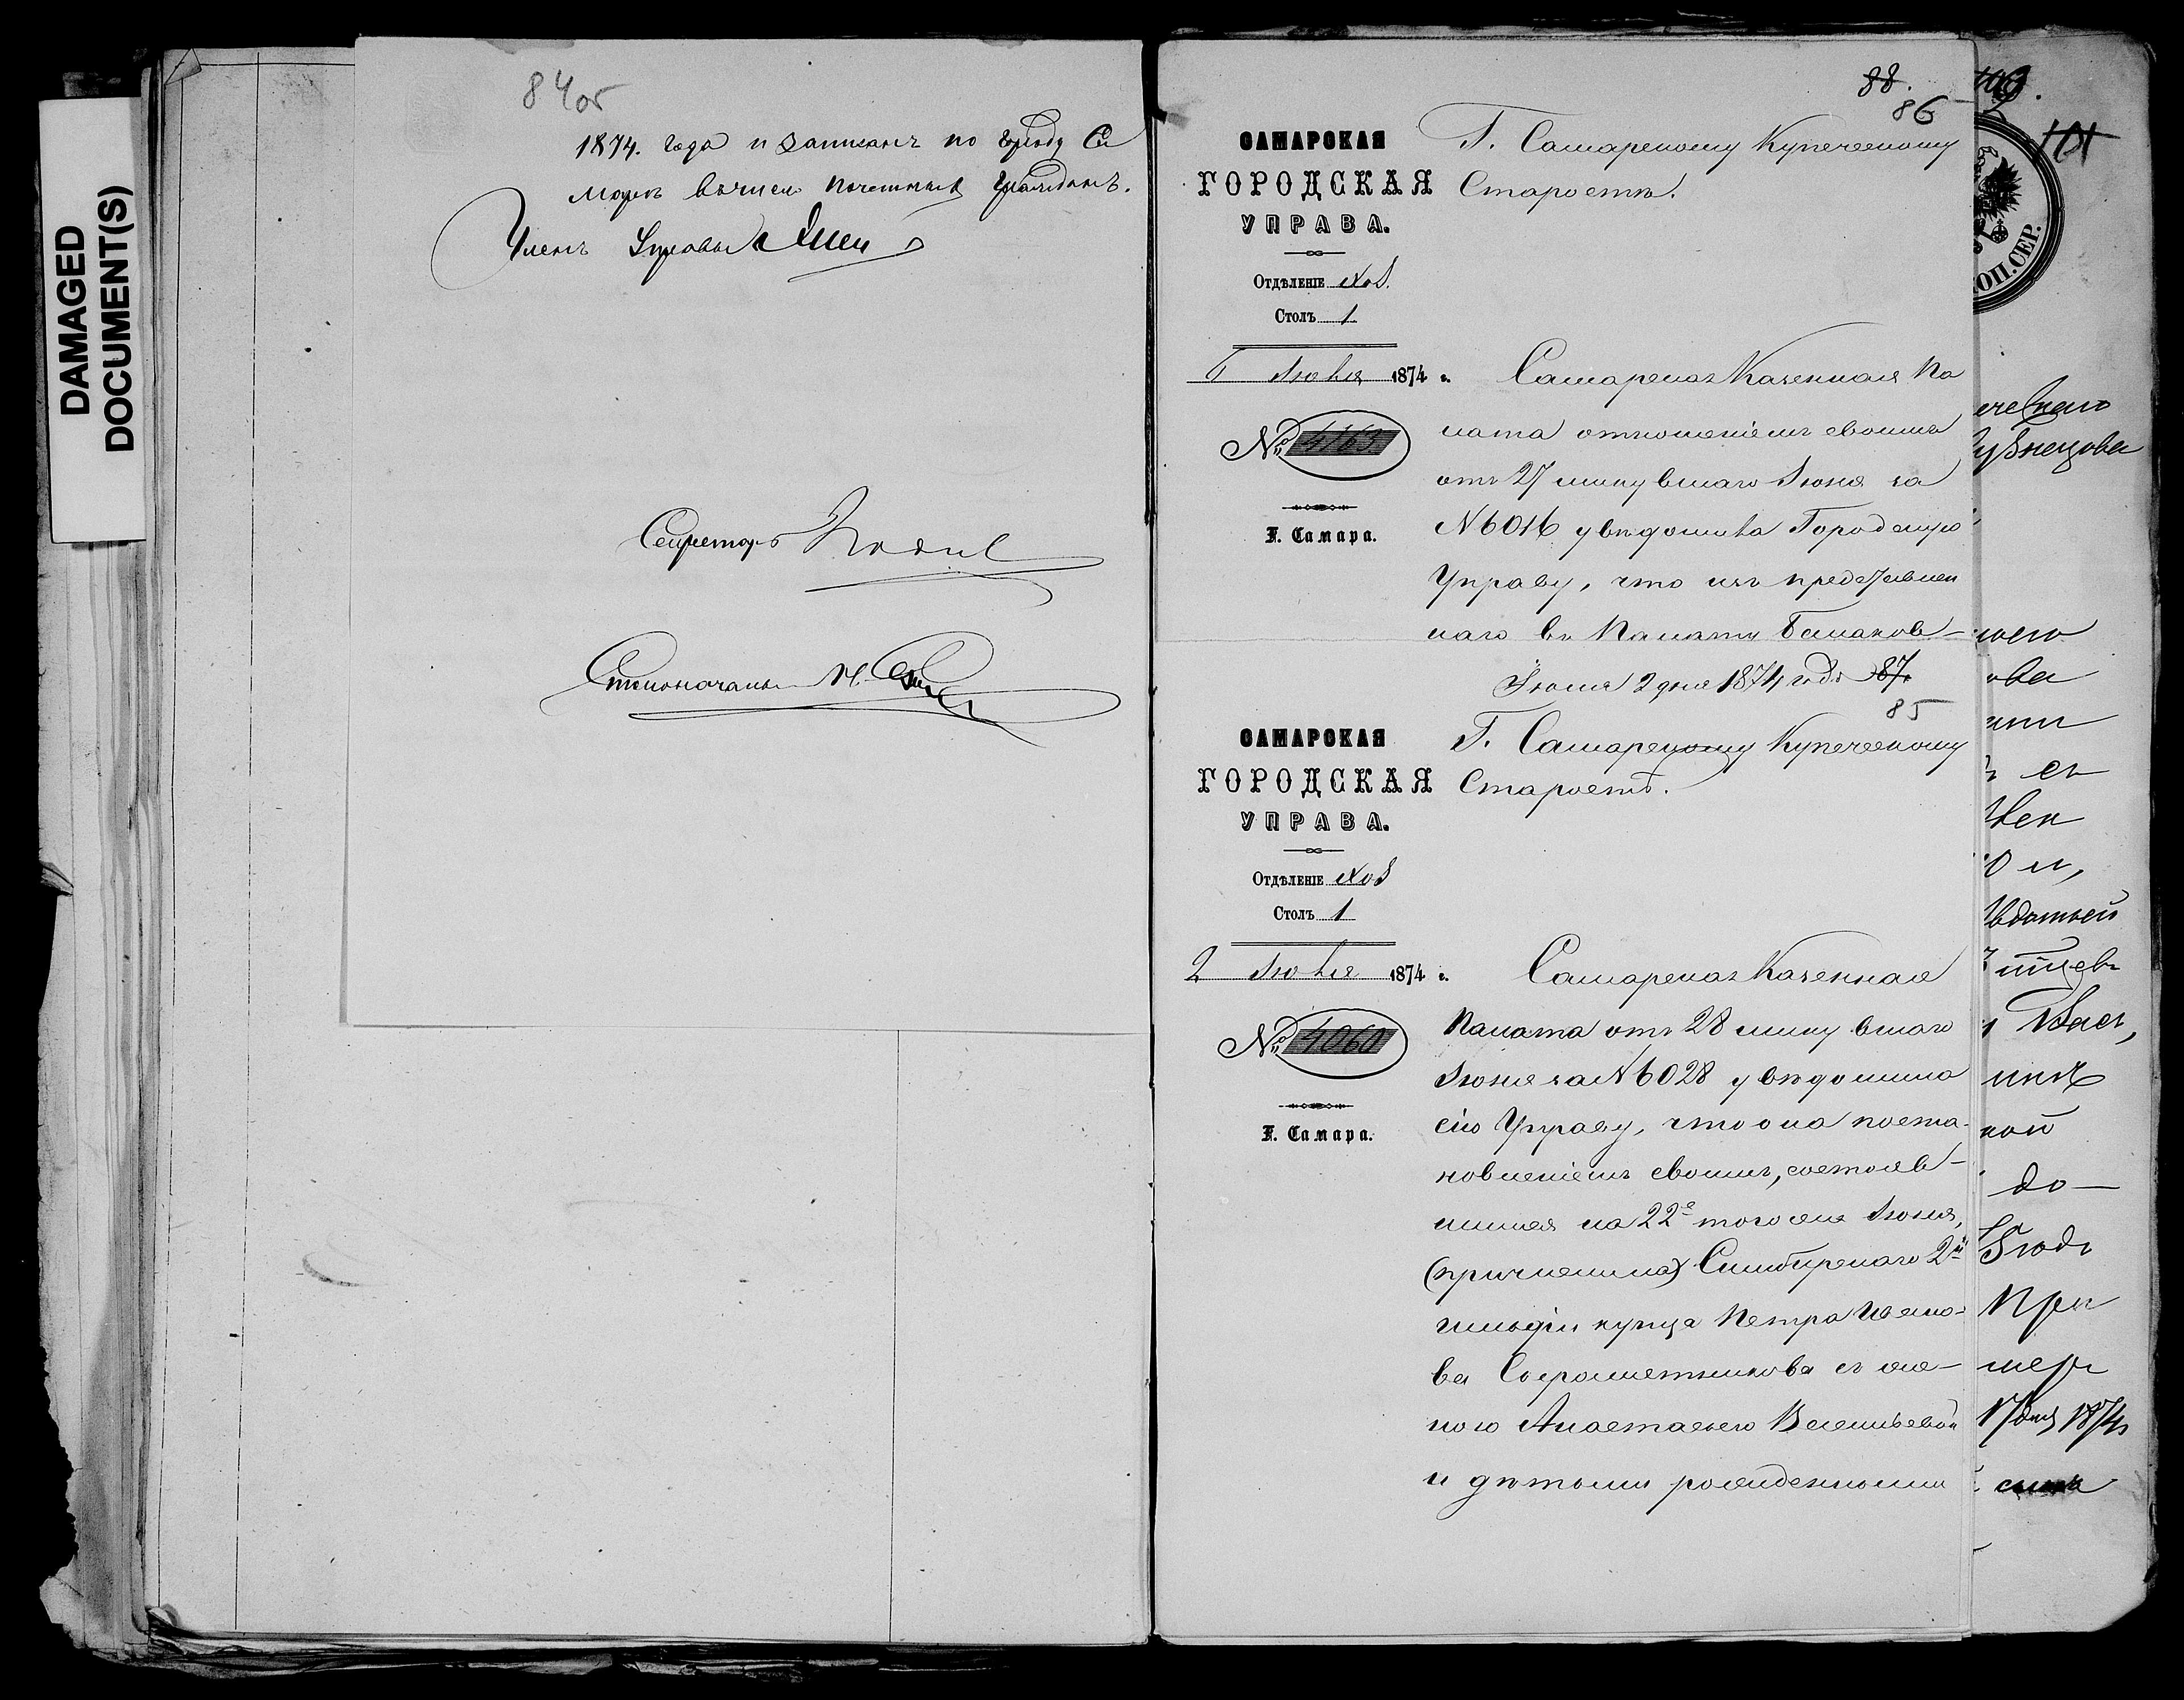 DAMAGED
DOCUMENT(S)
84об
1874. года и записанъ по городу Са
марѣ въ числѣ почетныхъ гражданъ.
Членъ Управы
Секретарь
Столоначаль
88.
86
САМАРСКАЯ
ГОРОДСКАЯ
УПРАВА.
Отдѣленіе
Столъ 1
6 Іюля 1874 г.
№ 4163
Г. Самара.
Г. Самарскому Купеческому
Старостѣ.
Самарская Казенная Па
лата отношеніемъ своимъ
отъ 27 минувшаго Іюня за
N 6016 увѣдомила Городскую
Управу, что изъ представлен
наго въ Палату
Іюля 2 дня 1874 года 87.
85
САМАРСКАЯ
ГОРОДСКАЯ
УПРАВА.
Отдѣленіе
Столъ 1
2 Іюля 1874 г.
№ 4060
Г. Самара.
Г. Самарскому Купеческому
Старостѣ.
Самарская Казенная
Палата отъ 28 минувшаго
Іюня за N 6028 увѣдомила
сію Управу, что она поста-
новленіемъ своимъ, состояв-
шимся на 22е того же Іюня,
(причислила) Симбирскаго 2й
гильдіи купца Петра Ивано-
ва съ же-
ною Анастасьею Васильевой
и дѣтьми рожденными
101
КОП. СЕР.
ческаго
узнецова
моего
ова
съ
Авдотьей
Вас,
ной
до-
При
17 дня 1874